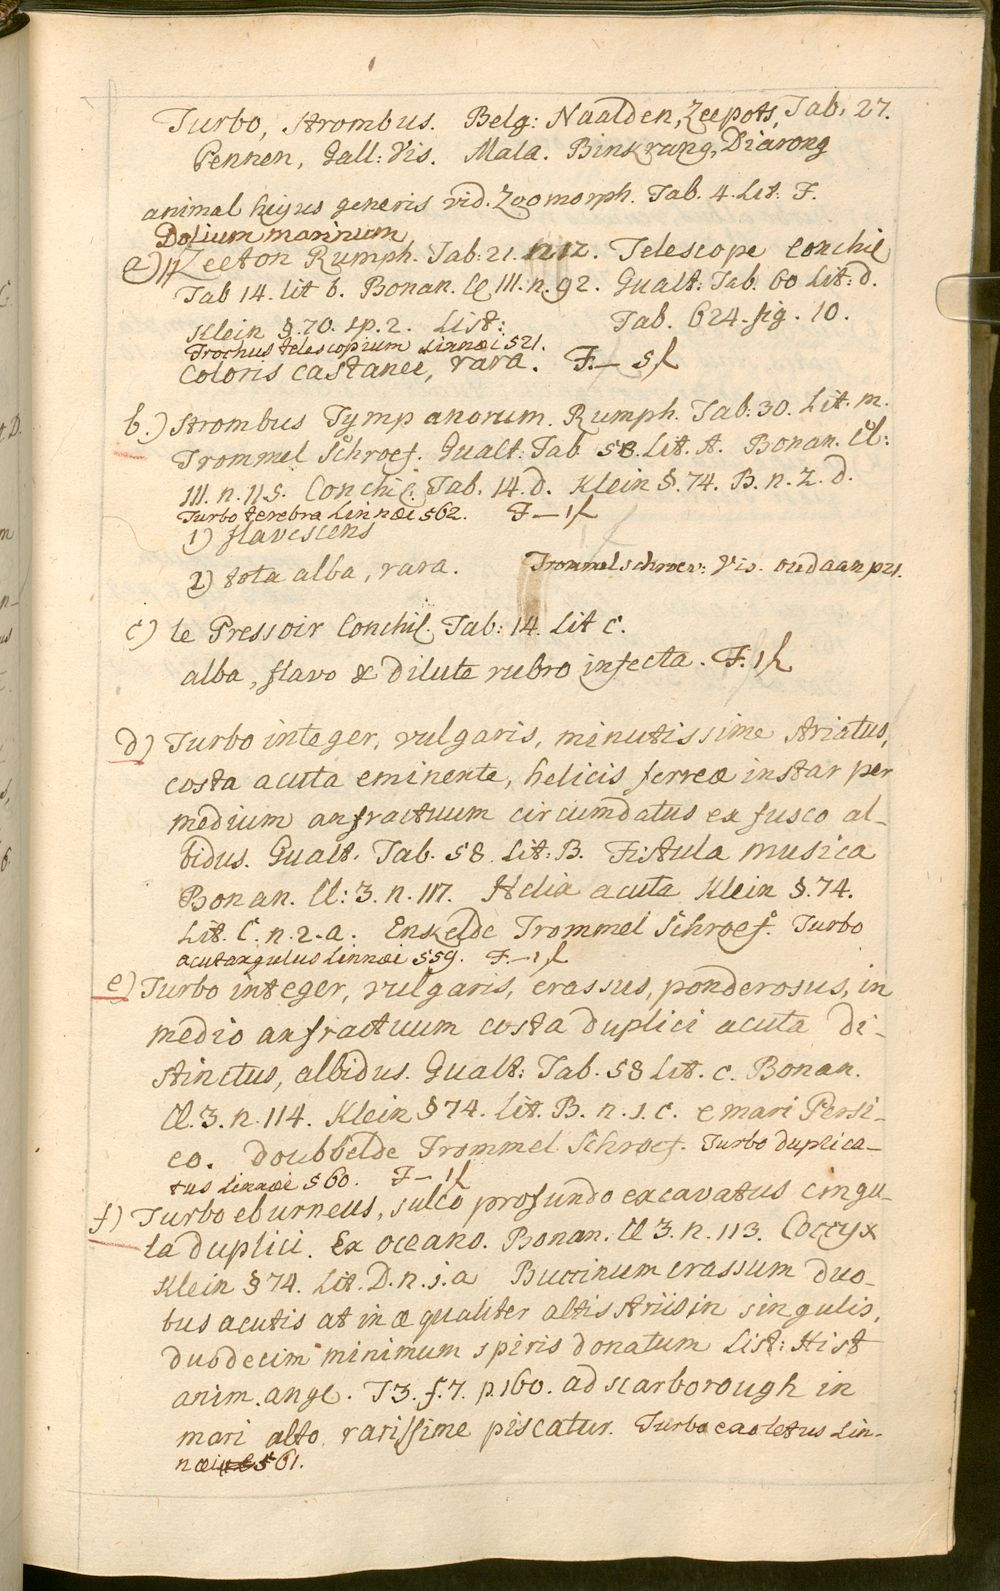 Turbo, Strombus. Belg: Naalden, Zeepots, Tab. 27.
Pennen, Gall: Vis. Mala. Binkrung, Diarong
animal hujus generis vid. Zoomorph. Tab. 4. Lit. F.
Dolium marinum
a) Zeeton Rumph. Tab: 21. n 12. Telescope Conchil
Tab 14. lit b. Bonan. Cl III. n. 92. Gualt: Tab. 60 Lit: d.
Klein §. 70. sp. 2. List: Tab. 624. fig. 10.
Trochus telescopium Linnæi 521.
Coloris castanei, rara. F. — 5 f
b.) Strombus Tympanorum. Rumph. Tab: 30. Lit. m.
Trommel Schroef. Gualt: Tab. 58. Lit. A. Bonan. Cl:
III. n. 115. Conchil. Tab. 14. d. Klein §. 74. B. n. 2. d.
Turbo terebra Linnæi 562. F — 1 f
1) flavescens
2) tota alba, rara. Trommelschroev: Vis. oudaan p 21.
c) le Pressoir Conchil. Tab: 14. Lit c.
alba, flavo & dilute rubro infecta. F. 1 f
d) Turbo integer, vulgaris, minutissime striatus,
costa acuta eminente, helicis ferreæ instar per
medium anfractuum circumdatus ex fusco al-
bidus. Gualt. Tab. 58. Lit: B. Fistula musica
Bonan. Cl: 3. n. 117. Helia acuta Klein §. 74.
Lit. C. n. 2. a. Enkelde Trommel Schroef. Turbo
acutangulus Linnæi 559. F. — 1 f
e) Turbo integer, vulgaris, crassus, ponderosus, in
medio anfractuum costa duplici acuta di-
stinctus, albidus. Gualt: Tab. 58 Lit. c. Bonan.
Cl. 3. n. 114. Klein § 74. Lit. B. n. 1. c. e mari Persi-
co. doubbelde Trommel Schroef. Turbo duplica-
tus Linnæi 560. F — 1 f
f) Turbo eburneus, sulco profundo excavatus cingu-
la duplici. Ex oceano. Bonan. Cl 3. n. 113. Coccyx
Klein § 74. Lit. D. n. 1. a Buccinum crassum duo-
bus acutis at inæqualiter altis striis in singulis,
duodecim minimum spiris donatum List: Hist
anim. angl. T 3. f. 7. p. 160. ad scarborough in
mari alto rarissime piscatur. Turbo exoletus Lin-
næi 561.